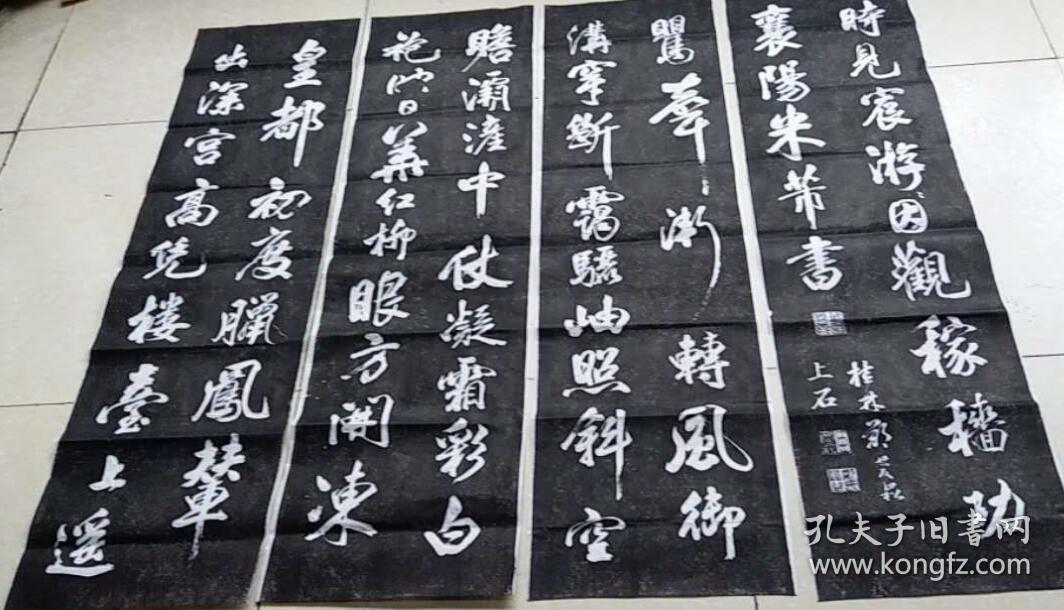 皇都初度臘鳳輦
出深宮高凭楼臺上遥
瞻灞滻中仗凝霜彩白
袍映日華紅柳眼方開凍
鸎聲漸轉風御
溝穿斷靄驪岫照斜空
時見宸游因觀稼穡功
襄陽米芾書
桂林
上石
孔夫子旧書网
www.kongfz.com